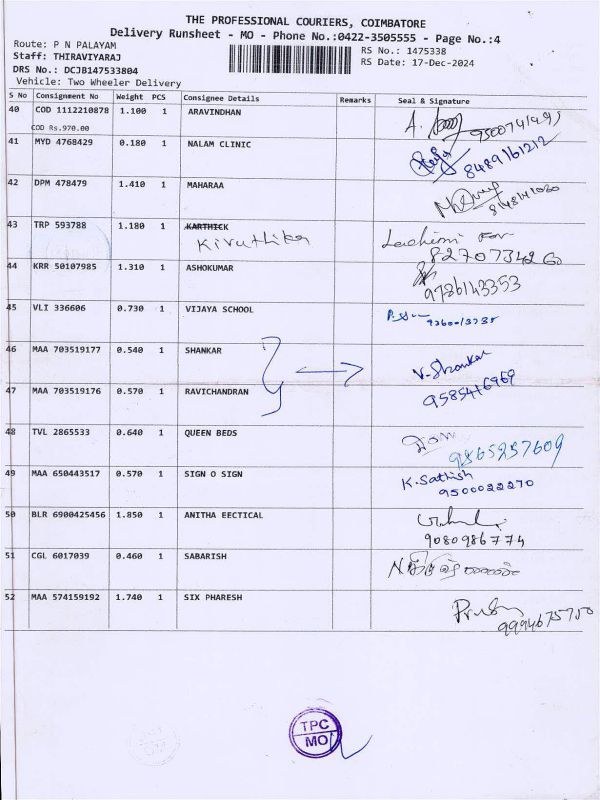 THE PROFESSIONAL COURIERS, COIMBATORE
Delivery Runsheet - MO - Phone No.:0422-3505555 - Page No.:4
Route: P N PALAYAM
RS No.: 1475338
Staff: THIRAVIYARAJ
RS Date: 17-Dec-2024
DRS No.: DCJB147533804
Vehicle: Two Wheeler Delivery
S No Consignment No Weight PCS Consignee Details Remarks Seal & Signature
40 COD 1112210878 1.100 1 ARAVINDHAN
COD Rs.970.00
41 MYD 4768429 0.180 1 NALAM CLINIC 8489161212
42 DPM 478479 1.410 1 MAHARAA
43 TRP 593788 1.180 1 KARTHICK
Kiruthika
8270734260
44 KRR 50107985 1.310 1 ASHOKUMAR
9786143353
45 VLI 336606 0.730 1 VIJAYA SCHOOL
46 MAA 703519177 0.540 1 SHANKAR V. Shankar
47 MAA 703519176 0.570 1 RAVICHANDRAN 9585416969
48 TVL 2865533 0.640 1 QUEEN BEDS
9865257609
49 MAA 650443517 0.570 1 SIGN O SIGN K. Sathish
9500022270
50 BLR 6900425456 1.850 1 ANITHA EECTICAL
9080986774
51 CGL 6017039 0.460 1 SABARISH
52 MAA 574159192 1.740 1 SIX PHARESH
TPC
MO